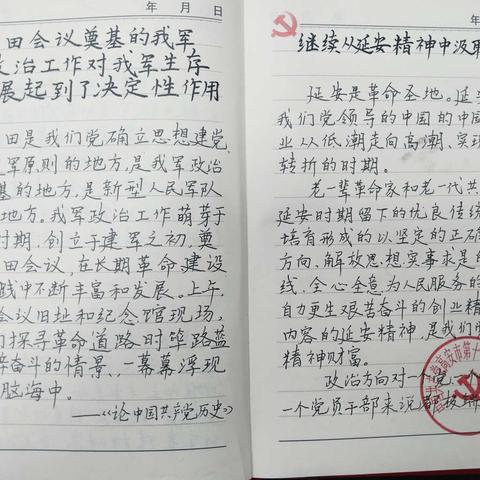 年 月 日
田会议奠基的我军
政治工作对我军生存
展起到了决定性作用
田是我们党确立思想建党、
军原则的地方,是我军政治
基的地方,是新型人民军队
地方。我军政治工作萌芽于
时期,创立于建军之初,奠
田会议,在长期革命、建设
践中不断丰富和发展。上午,
会议旧址和纪念馆现场,
们探寻革命道路时筚路蓝
苦奋斗的情景,一幕幕浮现
脑海中。
——《论中国共产党历史》
年
继续从延安精神中汲取
延安是革命圣地。延安
我们党领导的中国的中国
业从低潮走向高潮、实现
转折的时期。
老一辈革命家和老一代共
延安时期留下的优良传统
培育形成的以坚定的正确
方向、解放思想实事求是的
线、全心全意为人民服务的
自力更生艰苦奋斗的创业精
内容的延安精神,是我们
精神财富。
政治方向对一个党、一个
一个党员干部来说都极